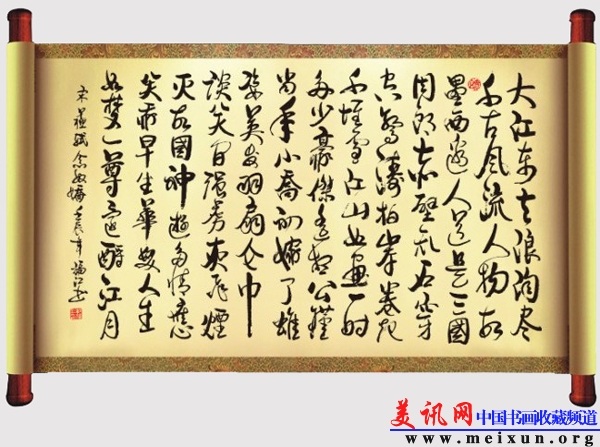 大江东去浪淘尽
千古风流人物故
垒西边人道是三國
周郎赤壁乱石穿
空惊涛拍岸卷起
千堆雪江山如画一时
多少豪傑遥想公瑾
当年小喬初嫁了雄
姿英发羽扇纶巾
谈笑间强虏灰飞煙
灭故國神游多情應
笑我早生華发人生
如梦一尊还酹江月
宋蘇轼念奴嬌 壬辰年
美讯网 中国书画收藏频道
www.meixun.org